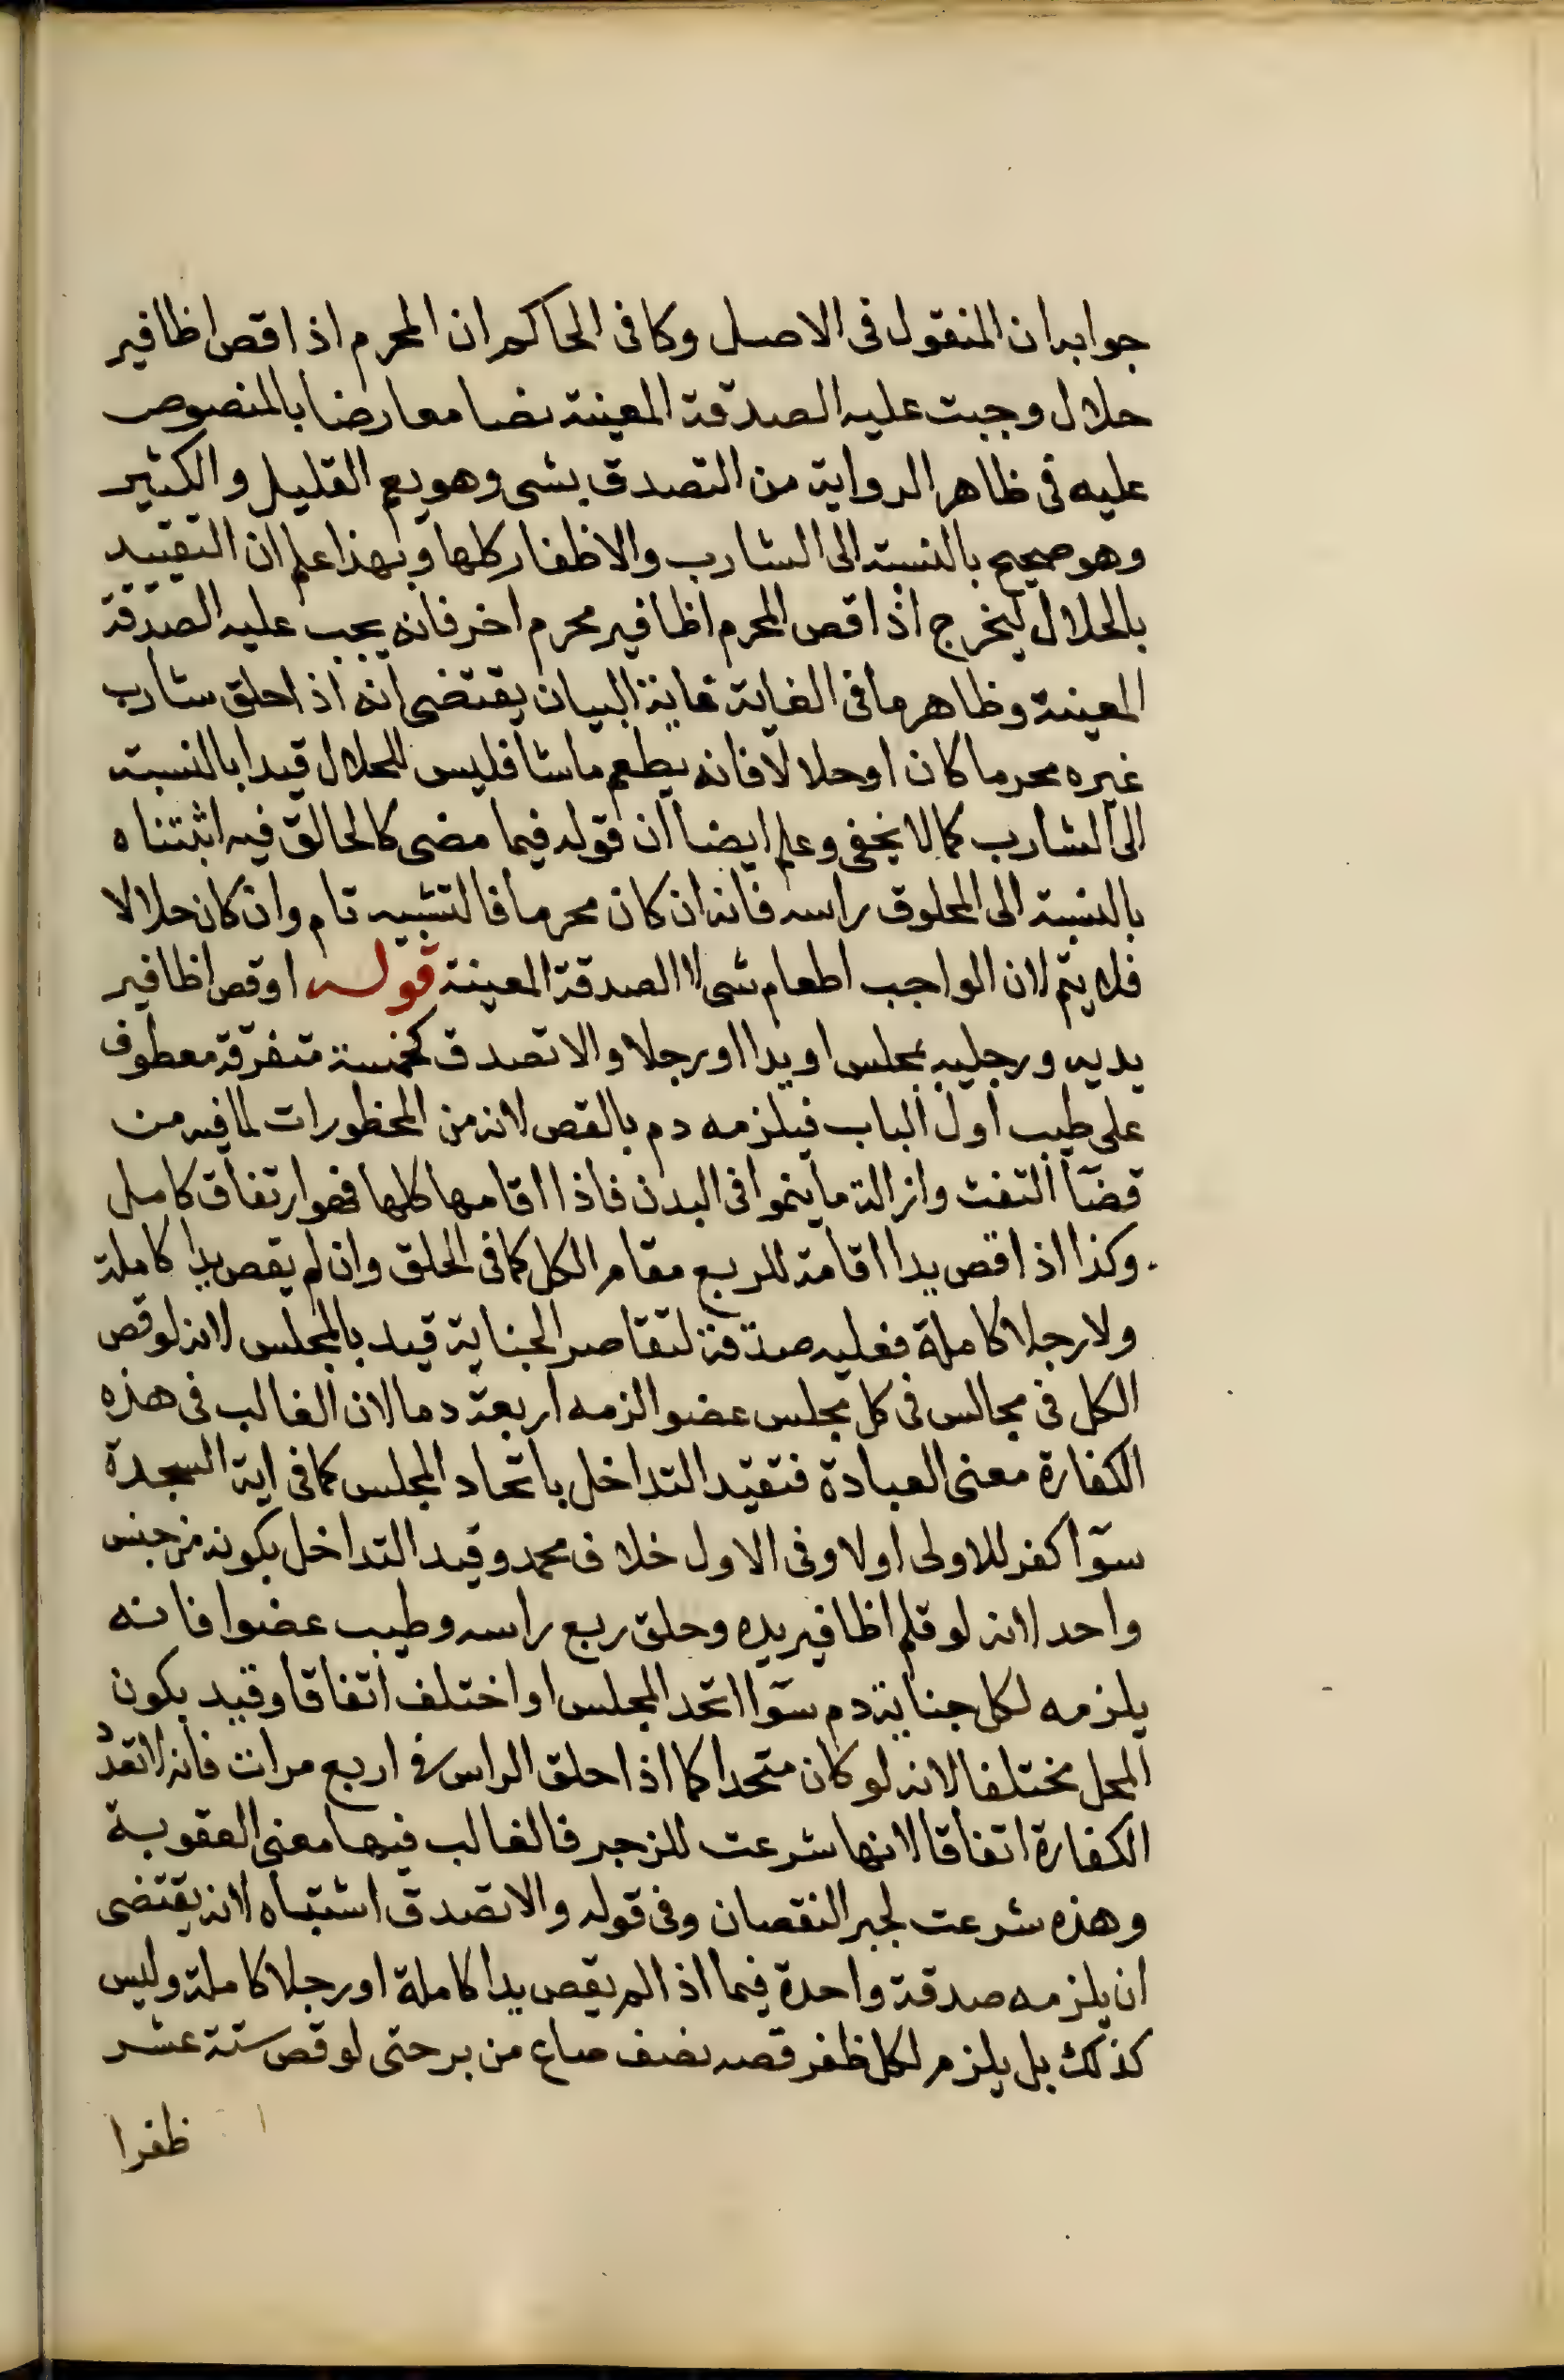 جوابه ان المنقول فى الاصل وكافى الحاكم ان المحرم اذا قص اظافير
حلال وجبت عليه الصدقة المعينة نصا معارضا بالمنصوص
عليه فى ظاهر الرواية من التصدق بشى وهو يعم القليل والكثير
وهو صحيح بالنسبة الى الشارب والاظفار كلها وبهذا علم ان التقييد
بالحلال ليخرج اذا قص المحرم اظافير محرم اخر فانه يجب عليه الصدقة
المعينة وظاهر ما فى الغاية غاية البيان يقتضى انه اذا حلق شارب
غيره محرما كان او حلالا فانه يطعم ما شا فليس للحلال قيدا بالنسبة
الى الشارب كما لا يخفى وعلم ايضا ان قوله فيما مضى كالحالق فيه اثبتناه
بالنسبة الى المحلوق راسه فانه ان كان محرما فالتشبيه تام وان كان حلالا
فلا يتم لان الواجب اطعام شى لا الصدقة المعينة قوله اوقص اظافير
يديه ورجليه بمجلس او يدا او رجلا والا تصدق كخمسة متفرقة معطوف
على طيب اول الباب فيلزمه دم بالقص لانه من المحظورات لما فيه من
قضآ التفث وازالة ما ينموا فى البدن فاذا اقامها كلها فهو ارتفاق كامل
وكذا اذا قص يدا اقامة للربع مقام الكل كما فى الحلق وان لم يقص يدا كاملة
ولا رجلا كاملة فعليه صدقة لتقاصر الجناية قيد بالمجلس لانه لو قص
الكل فى مجالس فى كل مجلس عضوا لزمه اربعة دما لان الغالب فى هذه
الكفارة معنى العبادة فتقيد التداخل باتحاد المجلس كما فى اية السجدة
سوآ كفر للاولى اولا وفى الاول خلاف محمد وقيد التداخل بكونه من جنس
واحد لانه لو قلم اظافير يده وحلق ربع راسه وطيب عضوا فانه
يلزمه لكل جناية دم سوآ اتحد المجلس او اختلف اتفاقا وقيد بكون
المحل مختلفا لانه لو كان متحدا كما اذا حلق الراس فى اربع مرات فانه لا تعدد
الكفارة اتفاقا لانها شرعت للزجر فالغالب فيها معنى العقوبة
وهذه شرعت لجبر النقصان وفى قوله والا تصدق اشتباه لانه يقتضى
ان يلزمه صدقة واحدة فيما اذا لم يقص يدا كاملة او رجلا كاملة وليس
كذلك بل يلزم لكل ظفر قصه نصف صاع من بر حتى لو قص ستة عشر
ظفرا